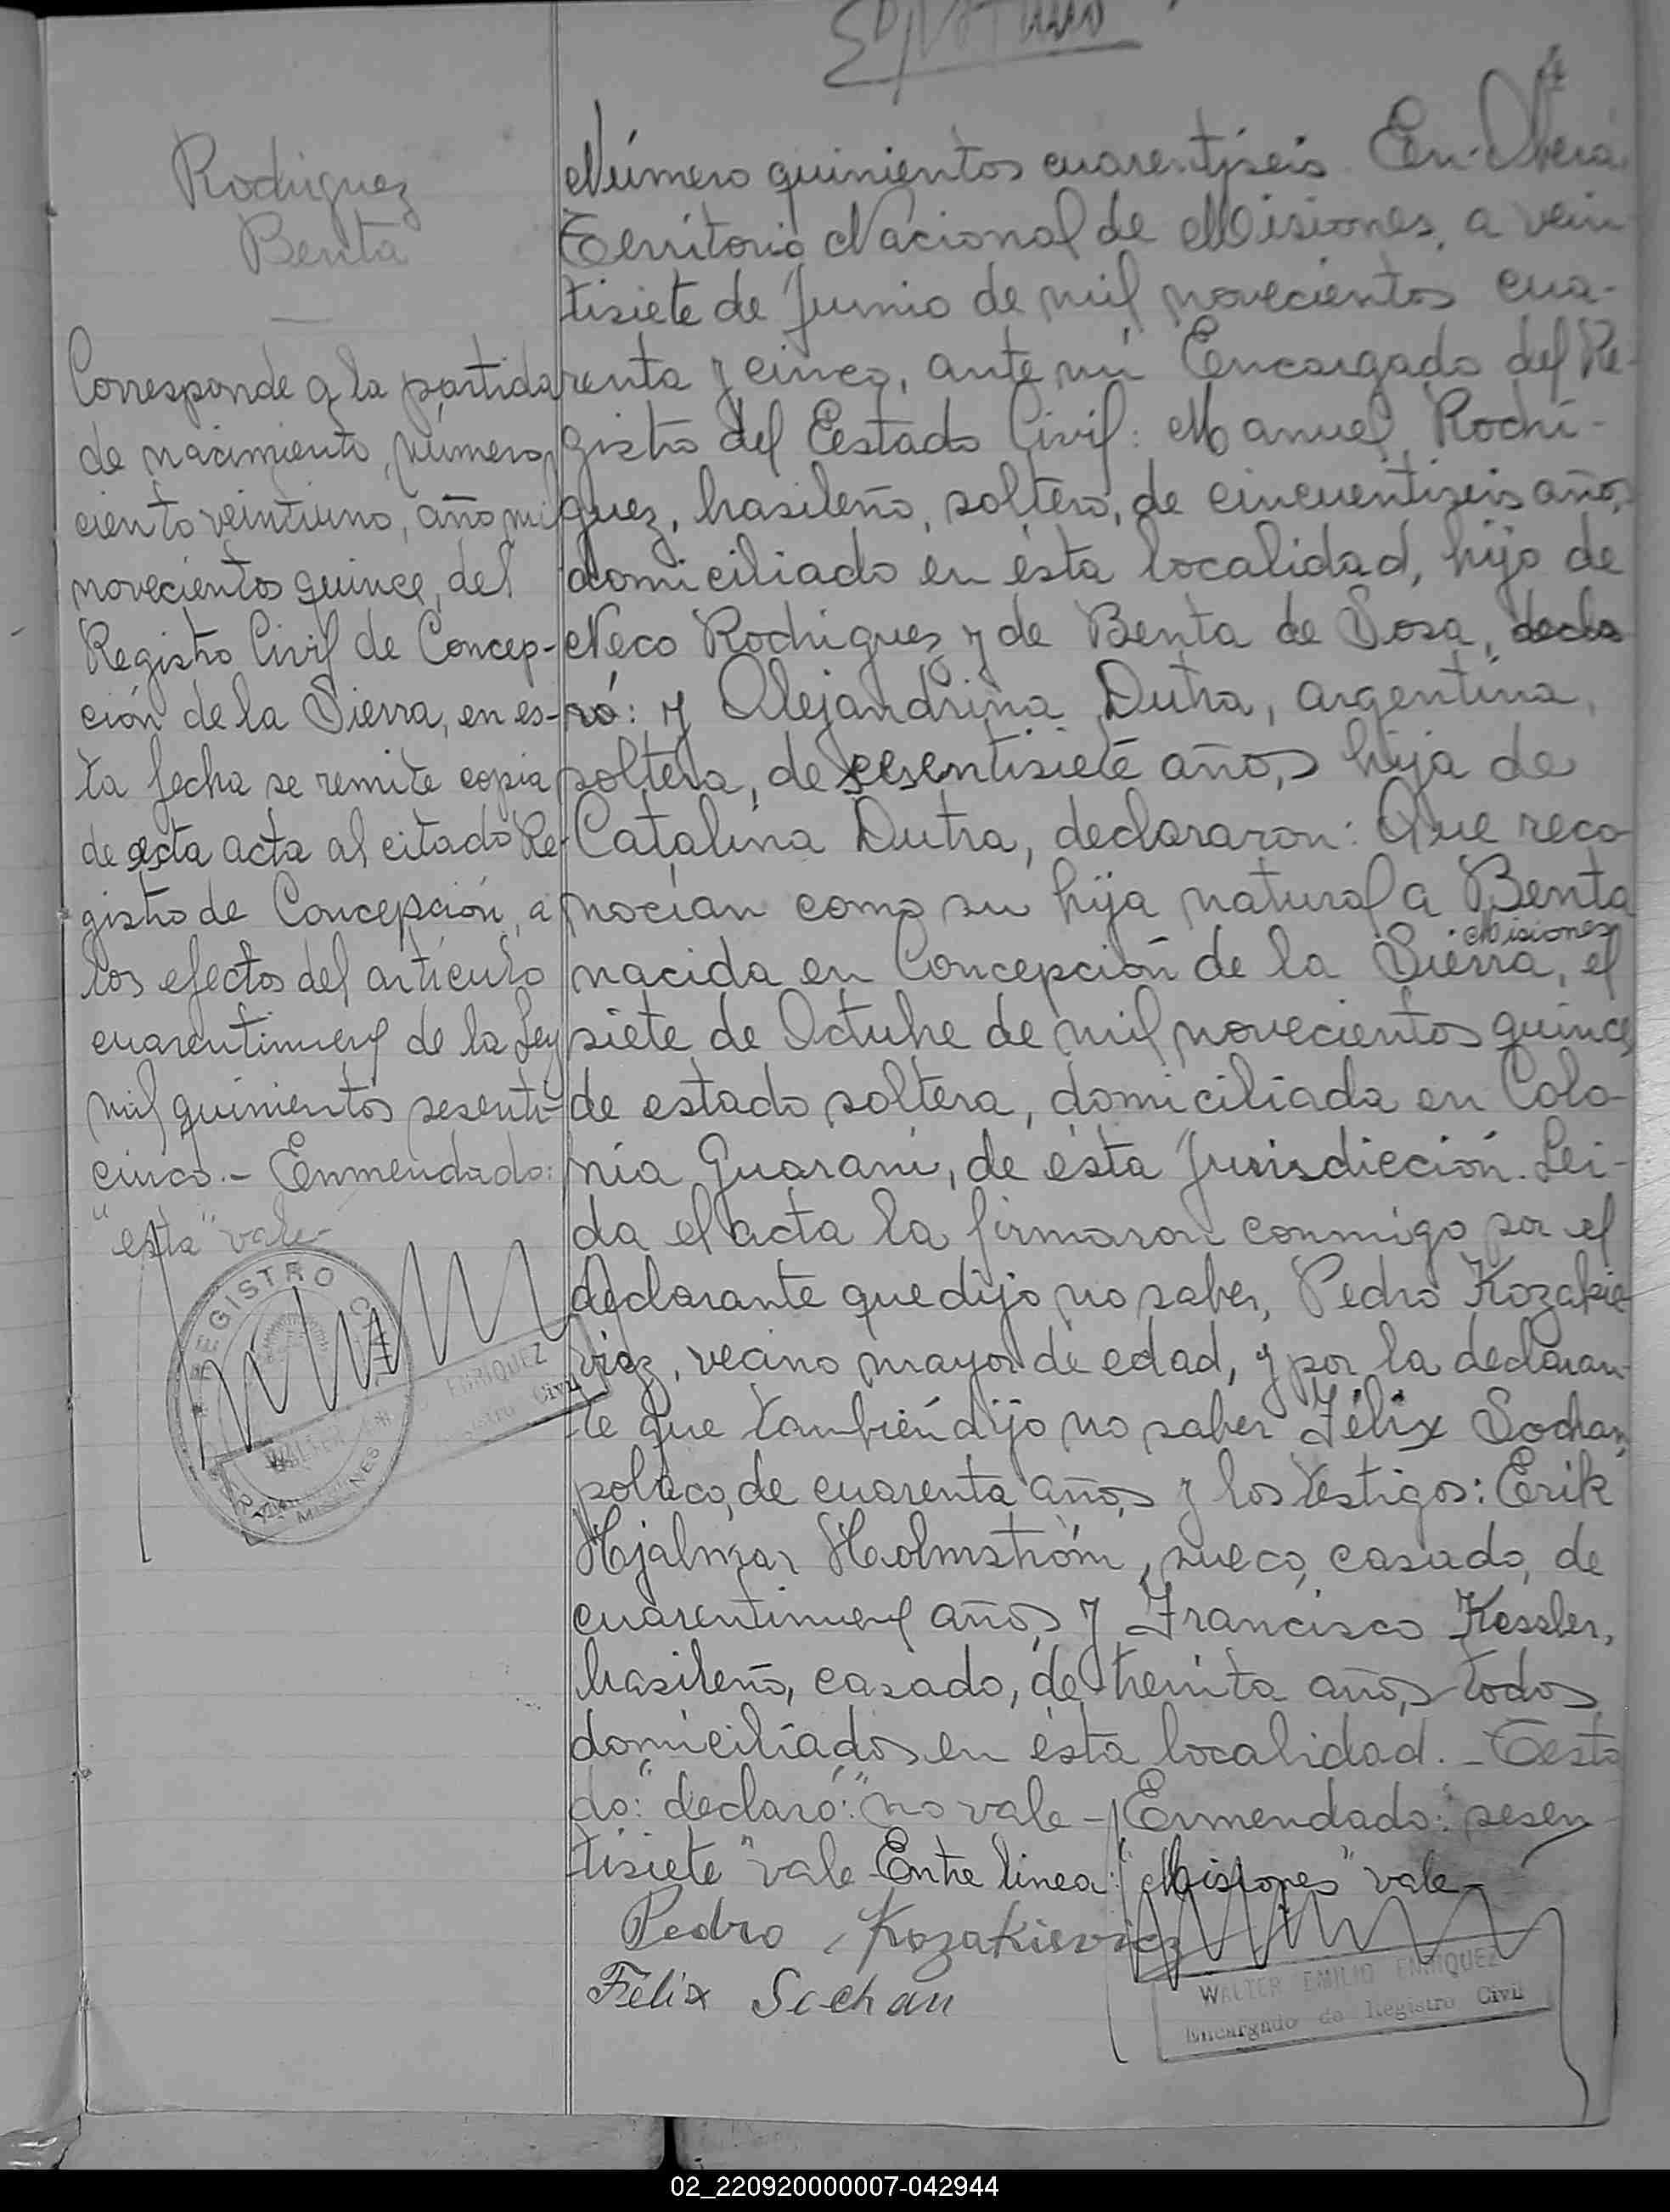 Rodriguez
Benta
Corresponde a la partida
de nacimiento, número
ciento veintiuno, año mil
novecientos quince, del
Registro Civil de Concep-
ción de la Sierra, en es-
ta fecha se remite copia
de esta acta al citado Re-
gistro de Concepción, a
los efectos del artículo
cuarentinueve de la Ley
mil quinientos sesenti-
cinco.- Enmendado:
"esta" vale-
REGISTRO CIVIL
MISIONES
WALTER ENRIQUEZ
Registro Civil
Número quinientos cuarentiseis. En Oberá
Territorio Nacional de Misiones, a vein
tisiete de Junio de mil novecientos cua-
renta y cinco, ante mí Encargado del Re-
gistro del Estado Civil: Manuel Rodri-
guez, brasileño, soltero, de cincuentiseis años,
domiciliado en ésta localidad, hijo de
Neco Rodriguez y de Benta de Sosa, decla
ró: y Alejandrina Dutra, argentina,
soltera, de sesentisiete años, hija de
Catalina Dutra, declararon: Que reco-
nocían como su hija natural a Benta
Misiones
nacida en Concepción de la Sierra, el
siete de Octubre de mil novecientos quince,
de estado soltera, domiciliada en Colo-
nia Guaraní, de ésta Jurisdicción. Lei-
da el acta la firmaron conmigo por el
declarante que dijo no saber, Pedro Kozakie-
vicz, vecino mayor de edad, y por la declaran-
te que también dijo no saber Félix Sochan,
polaco, de cuarenta años, y los testigos: Erik
Hjalmar Holmström, sueco, casado, de
cuarentinueve años y Francisco Kessler,
brasileño, casado, de treinta años, todos
domiciliados en ésta localidad.- Testa
do: "declaró:" no vale - Enmendado: "sesen
tisiete" vale Entre linea: "Misiones" vale-
Pedro Kozakievicz
Félix Sochan
WALTER EMILIO ENRIQUEZ
Encargado de Registro Civil
02_220920000007-042944